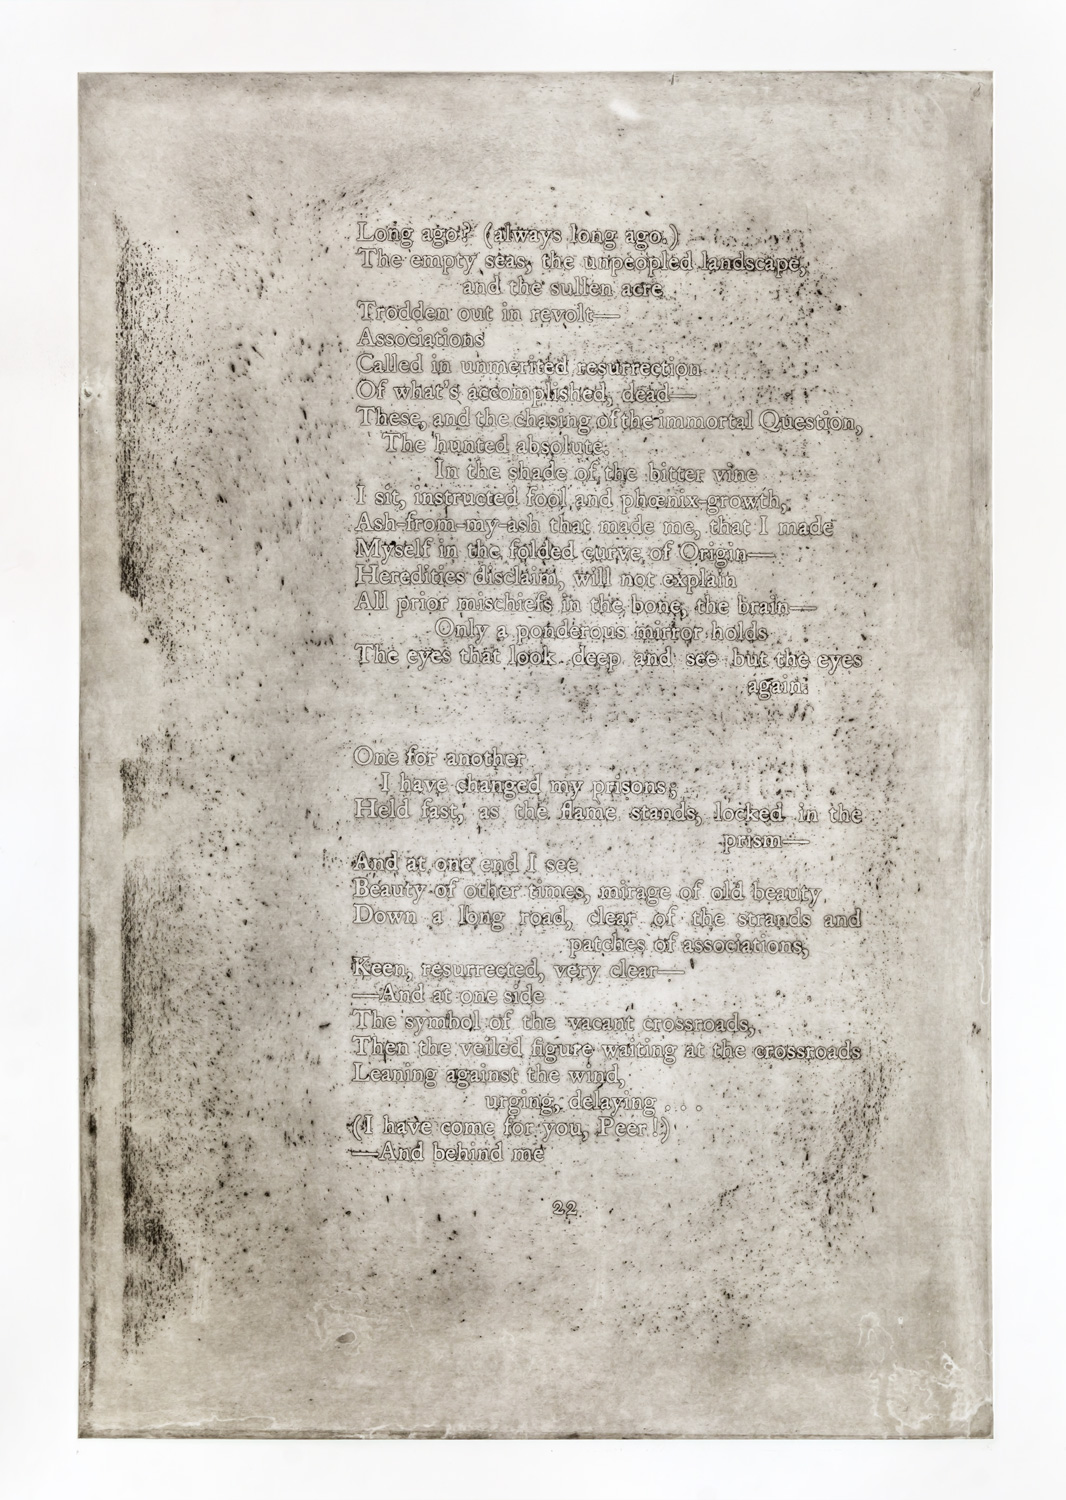 Long ago? (always long ago.)
The empty seas, the unpeopled landscape,
and the sullen acre
Trodden out in revolt—
Associations
Called in unmerited resurrection
Of what's accomplished, dead—
These, and the chasing of the immortal Question,
The hunted absolute.
In the shade of the bitter vine
I sit, instructed fool and phœnix-growth,
Ash-from-my-ash that made me, that I made
Myself in the folded curve of Origin—
Heredities disclaim, will not explain
All prior mischiefs in the bone, the brain—
Only a ponderous mirror holds
The eyes that look deep and see but the eyes
again.
One for another
I have changed my prisons;
Held fast, as the flame stands, locked in the
prism—
And at one end I see
Beauty of other times, mirage of old beauty
Down a long road, clear of the strands and
patches of associations,
Keen, resurrected, very clear—
—And at one side
The symbol of the vacant crossroads,
Then the veiled figure waiting at the crossroads
Leaning against the wind,
urging, delaying . . .
(I have come for you, Peer!)
—And behind me
22